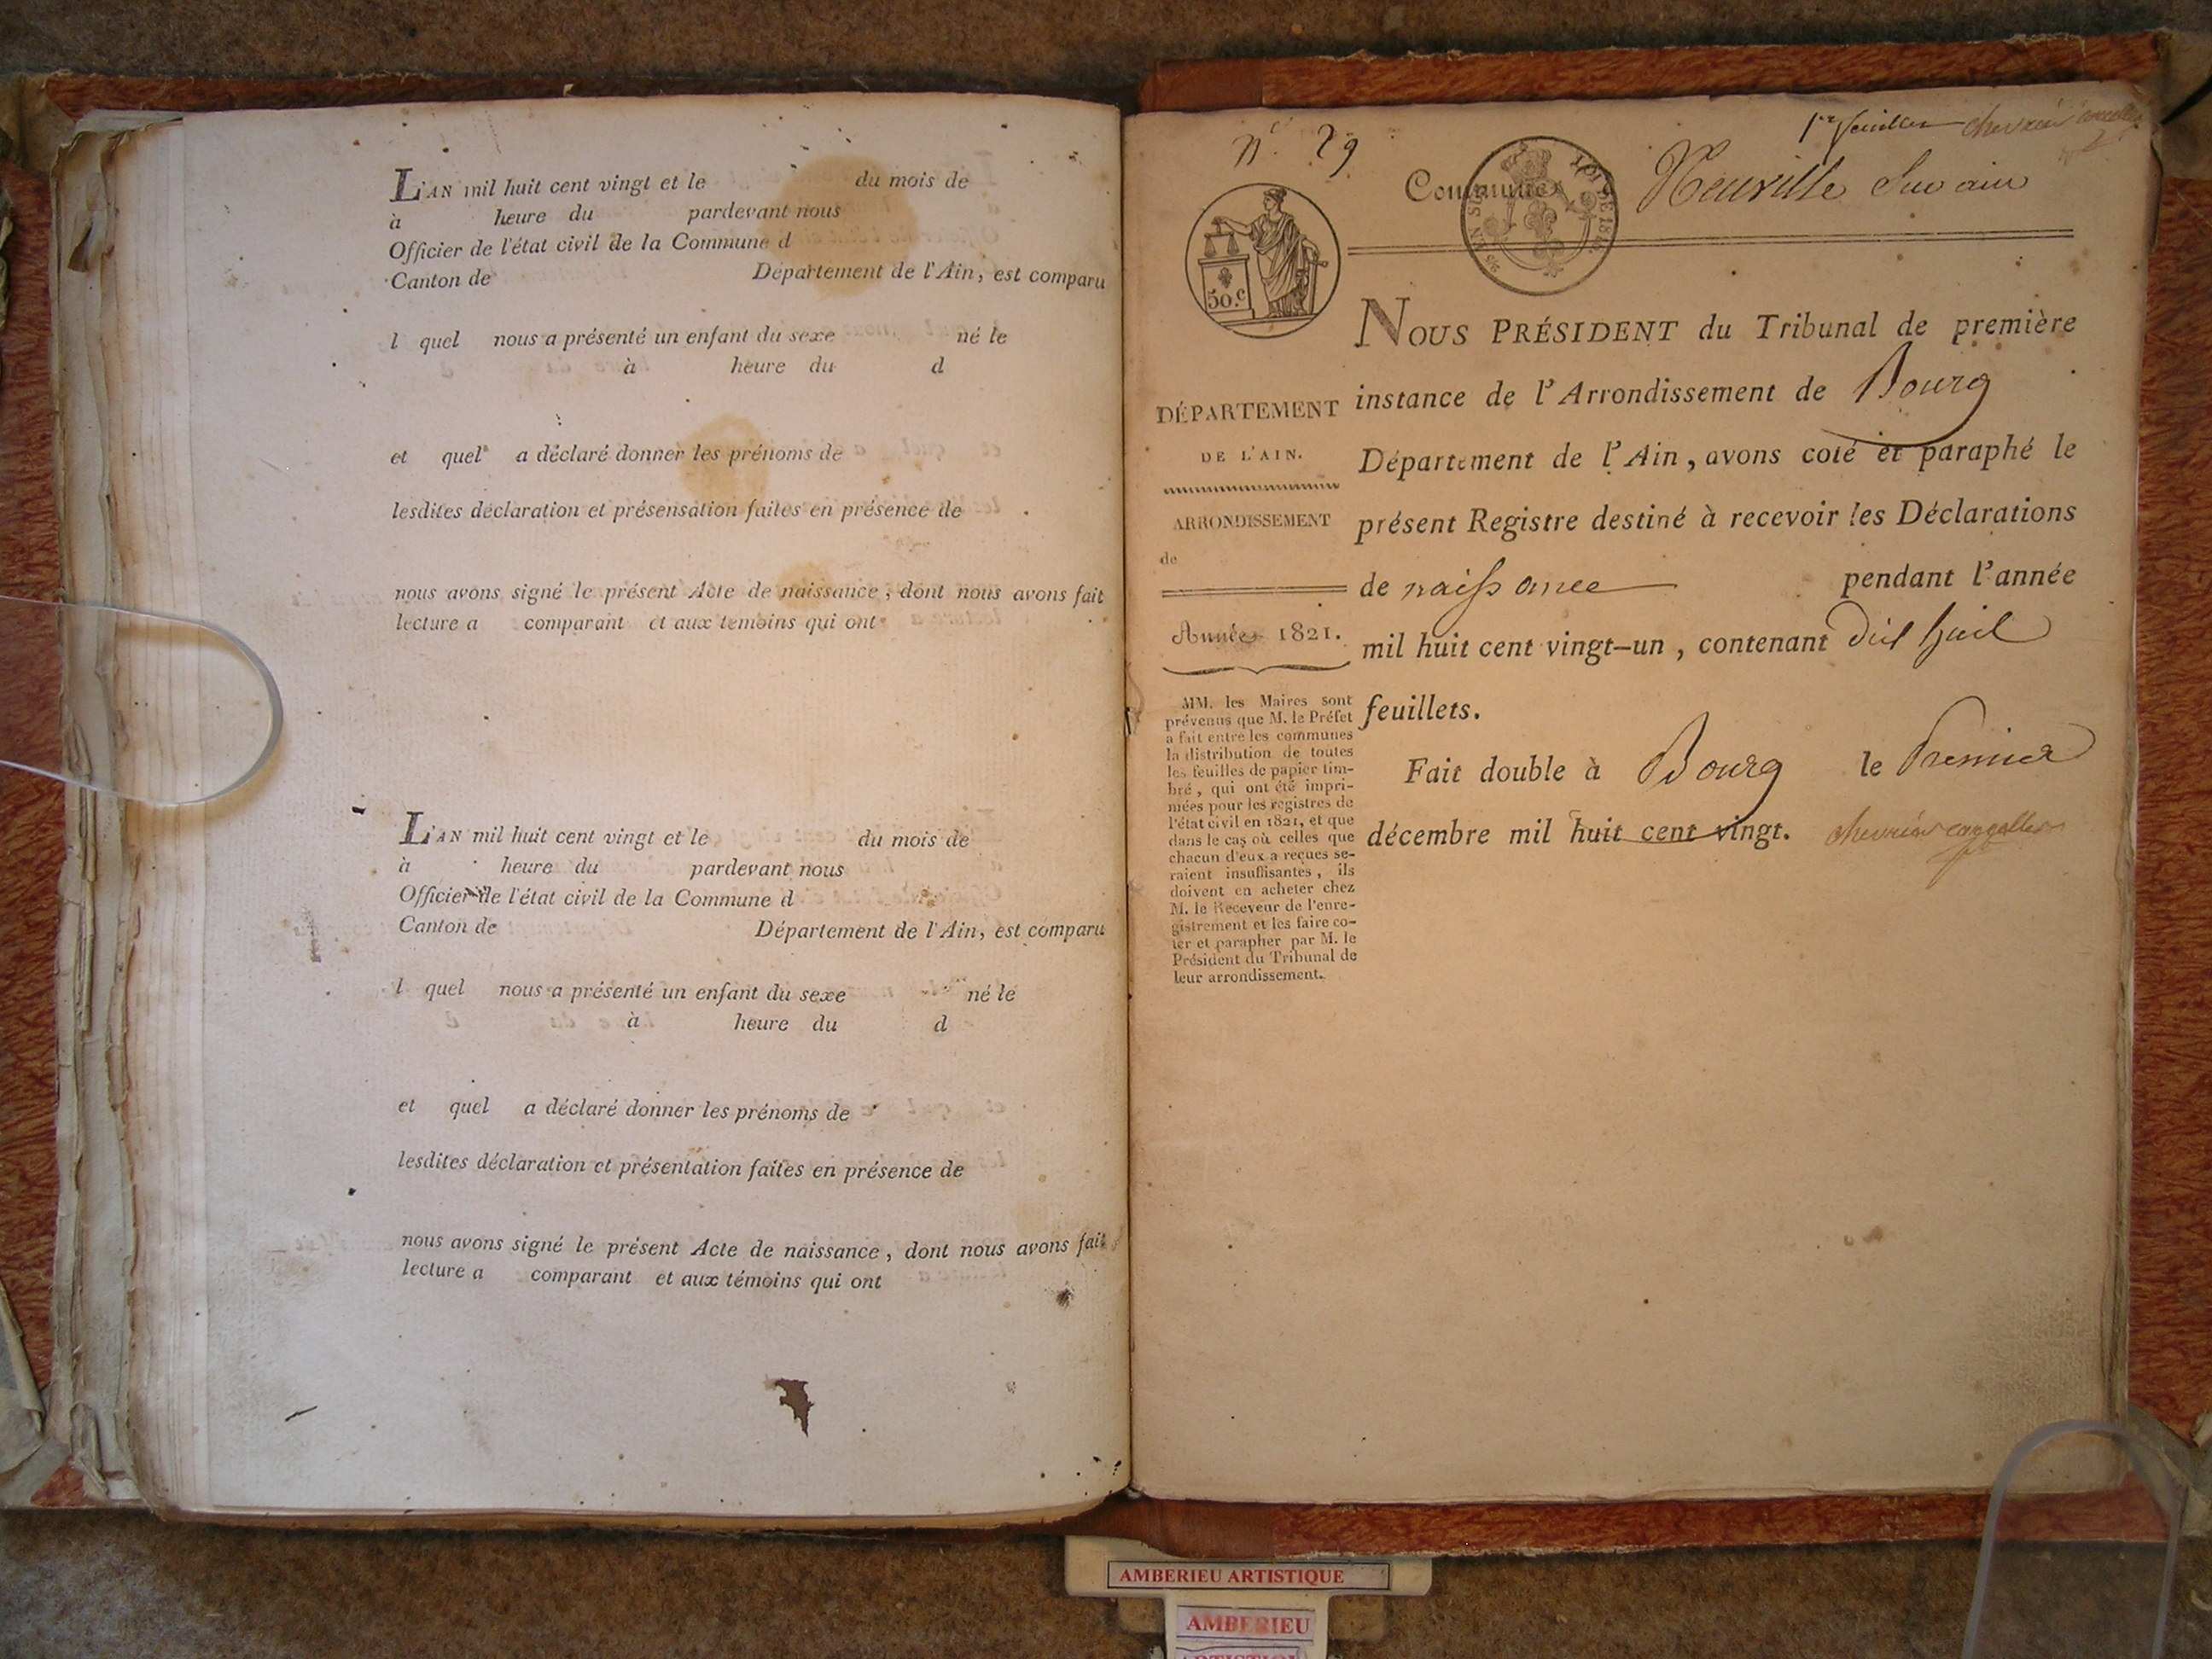 L'AN mil huit cent vingt et le du mois de
à heure du pardevant nous
Officier de l'état civil de la Commune d
Canton de Département de l'Ain, est comparu
l quel nous a présenté un enfant du sexe né le
à heure du d
et quel a déclaré donner les prénoms de
lesdites déclaration et présensation faites en présence de
nous avons signé le présent Acte de naissance, dont nous avons fait
lecture a comparant et aux temoins qui ont
L'AN mil huit cent vingt et le du mois de
à heure du pardevant nous
Officier de l'état civil de la Commune d
Canton de Département de l'Ain, est comparu
l quel nous a présenté un enfant du sexe né le
à heure du d
et quel a déclaré donner les prénoms de
lesdites déclaration et présentation faites en présence de
nous avons signé le présent Acte de naissance, dont nous avons fait
lecture a comparant et aux témoins qui ont
1er feuillet
N° 29
Commune Neuville Sur ain
50.c
NOUS PRÉSIDENT du Tribunal de première
instance de l'Arrondissement de Bourg
Département de l'Ain, avons coté et paraphé le
présent Registre destiné à recevoir les Déclarations
de naissance pendant l'année
mil huit cent vingt-un, contenant dix huit
feuillets.
Fait double à Bourg le Premier
décembre mil huit cent vingt.
DÉPARTEMENT
DE L'AIN.
ARRONDISSEMENT
de
Année 1821.
MM. les Maires sont
prévenus que M. le Préfet
a fait entre les communes
la distribution de toutes
les feuilles de papier tim-
bré, qui ont été impri-
mées pour les registres de
l'état civil en 1821, et que
dans le cas où celles que
chacun d'eux a reçues se-
raient insuffisantes, ils
doivent en acheter chez
M. le Receveur de l'enre-
gistrement et les faire co-
ter et parapher par M. le
Président du Tribunal de
leur arrondissement.
AMBERIEU ARTISTIQUE
AMBERIEU
ARTISTIQUE